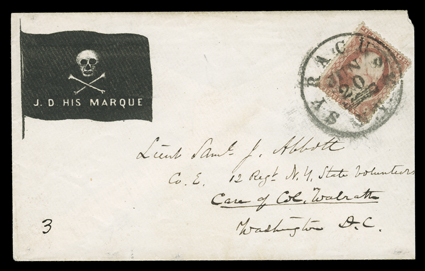 J. D HIS MARQUE
SYRACUSE
JUN
20
Lieut Saml. J. Abbott
Co. E. 12 Regt N.Y. State Volunteers
Care of Col. Walrath
Washington D.C.
3